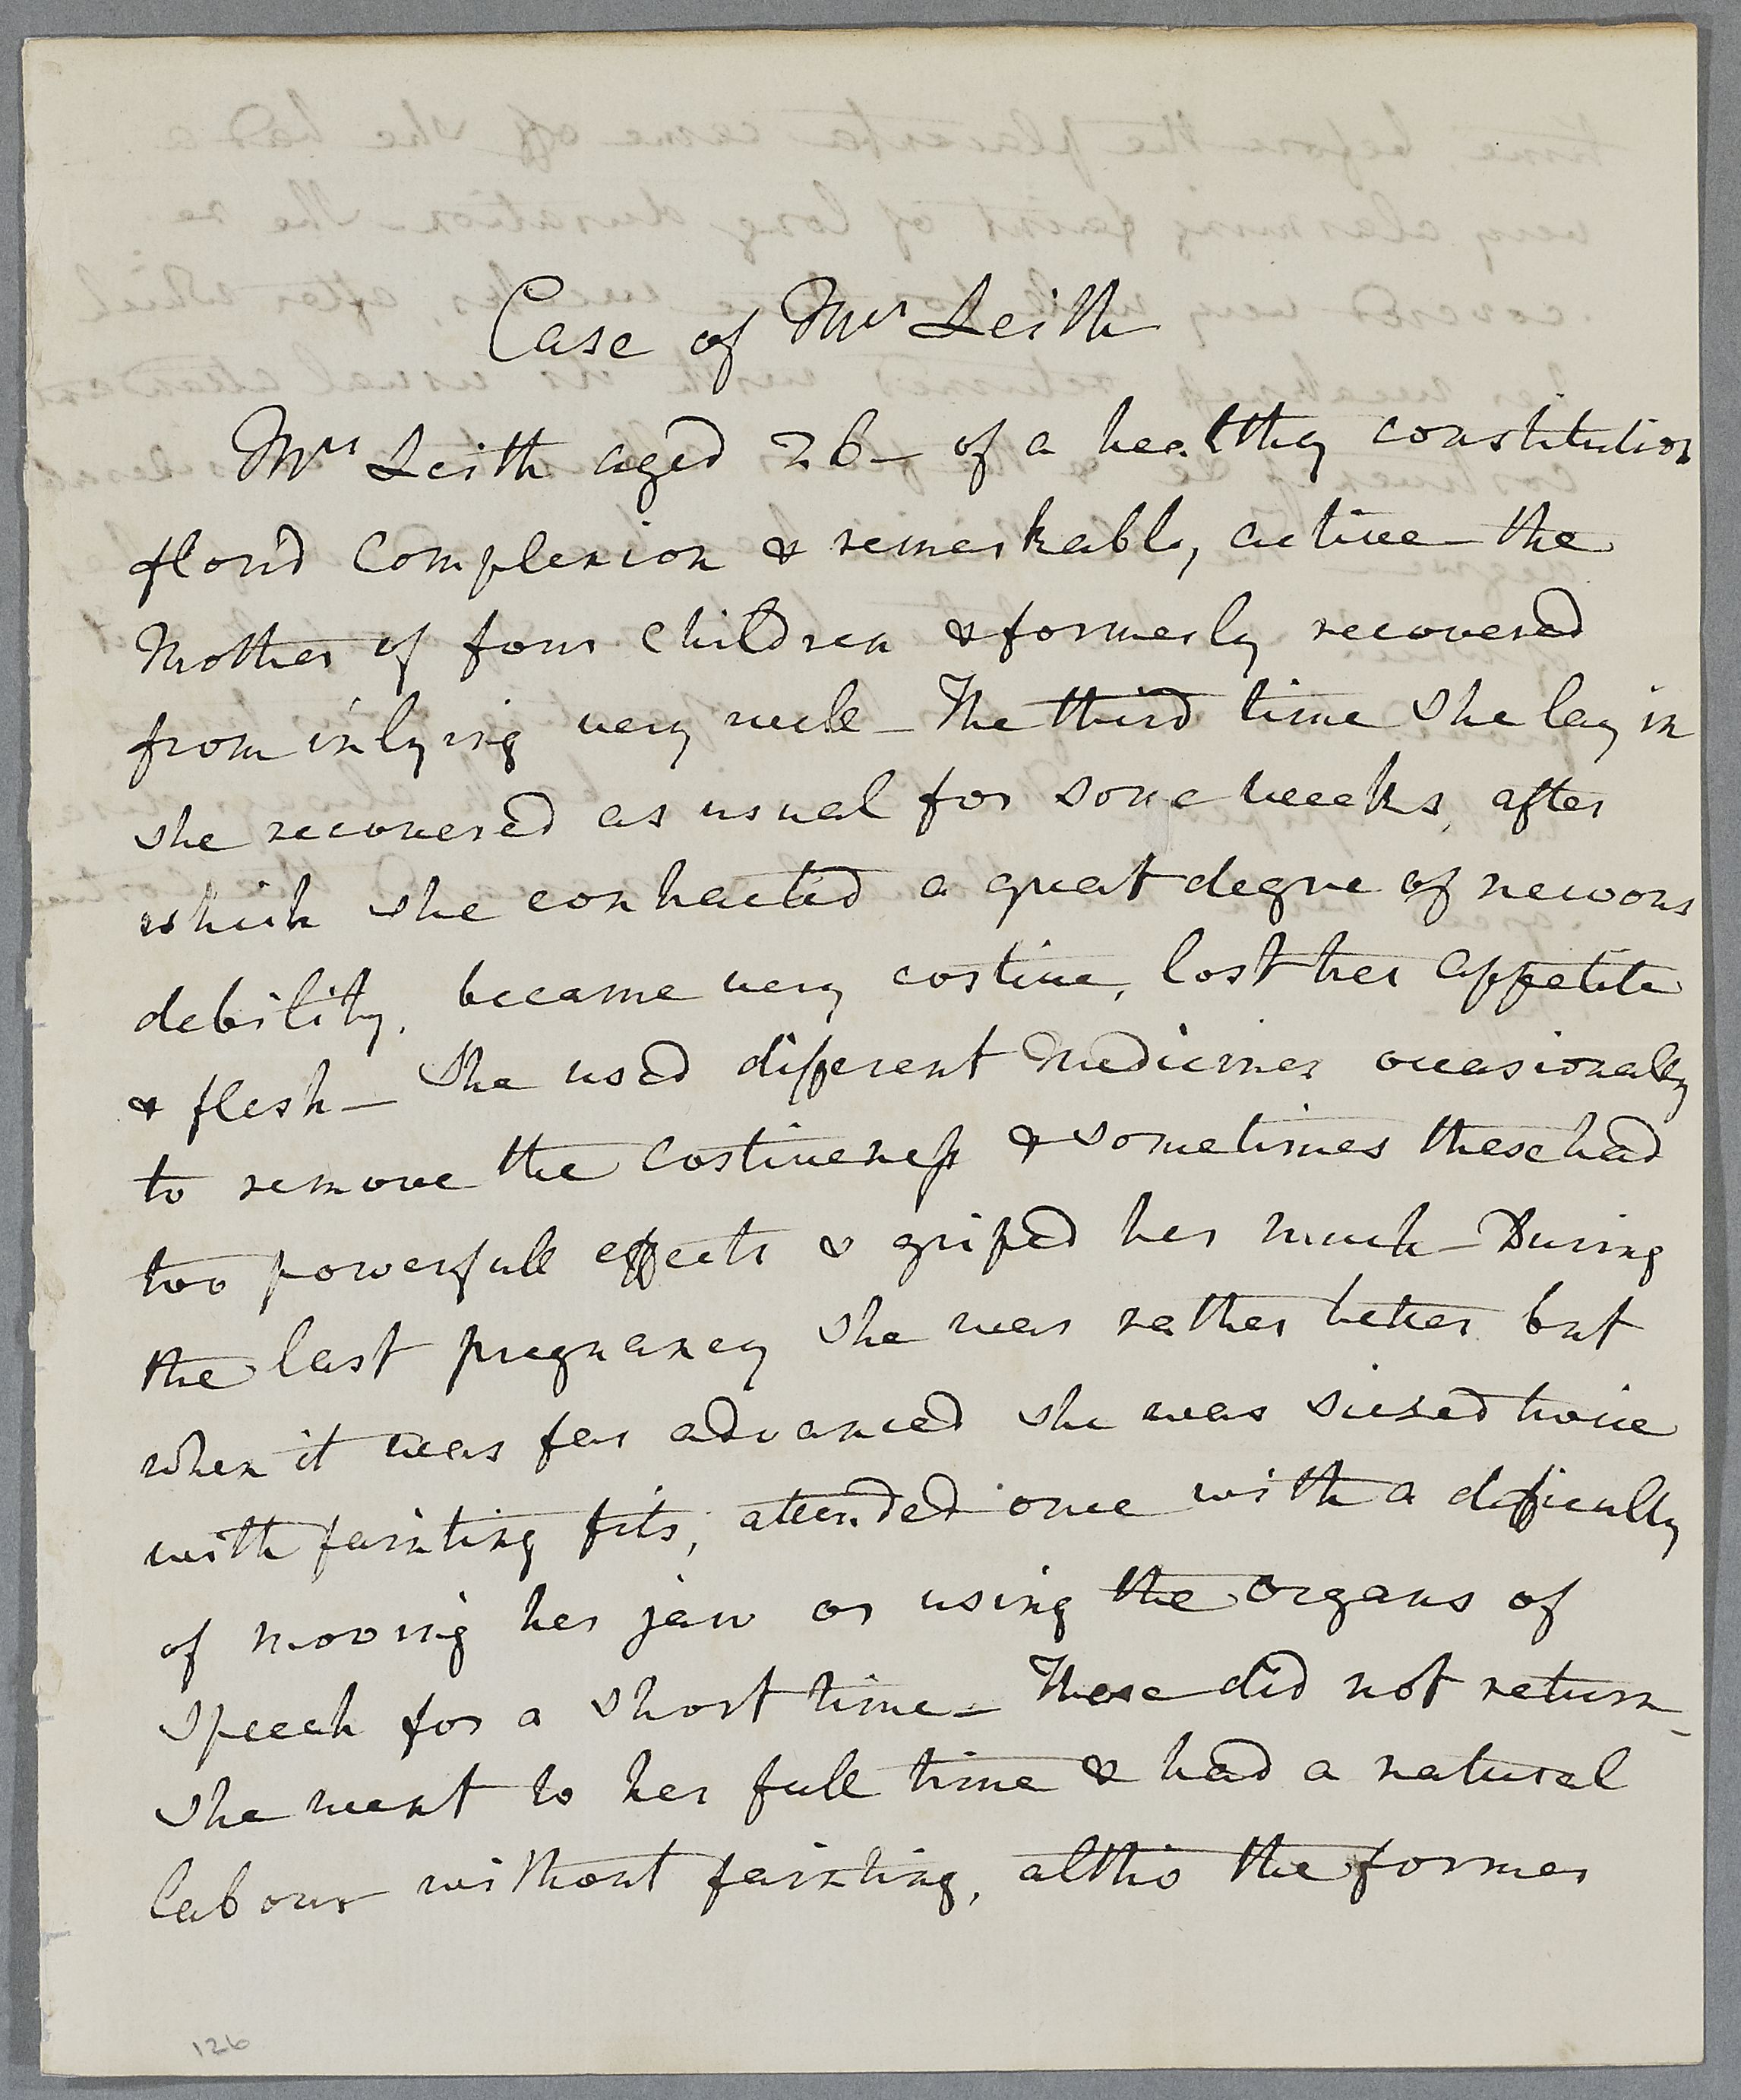 Case of Mrs Leith
Mrs Leith aged 26 – of a healthy constitution
florid Complexion & remarkably active – the
Mother of four Children & formerly recovered
from inlying very well – The third time she lay in
she recovered as usual for some weeks, after
which she contracted a great degree of nervous
debility, became very costive, lost her appetite
& flesh – She used different Medicines occasionally
to remove the Costiveness & sometimes these had
too powerfull effects & griped her much – During
the last pregnancy she was rather better but
when it was far advanced she was siezed twice
with fainting fits, attended once with a dificulty
of mooving her jaw or using the organs of
speech for a short time – These did not return –
she went to her full time & had a natural
labour without fainting, altho the former
126